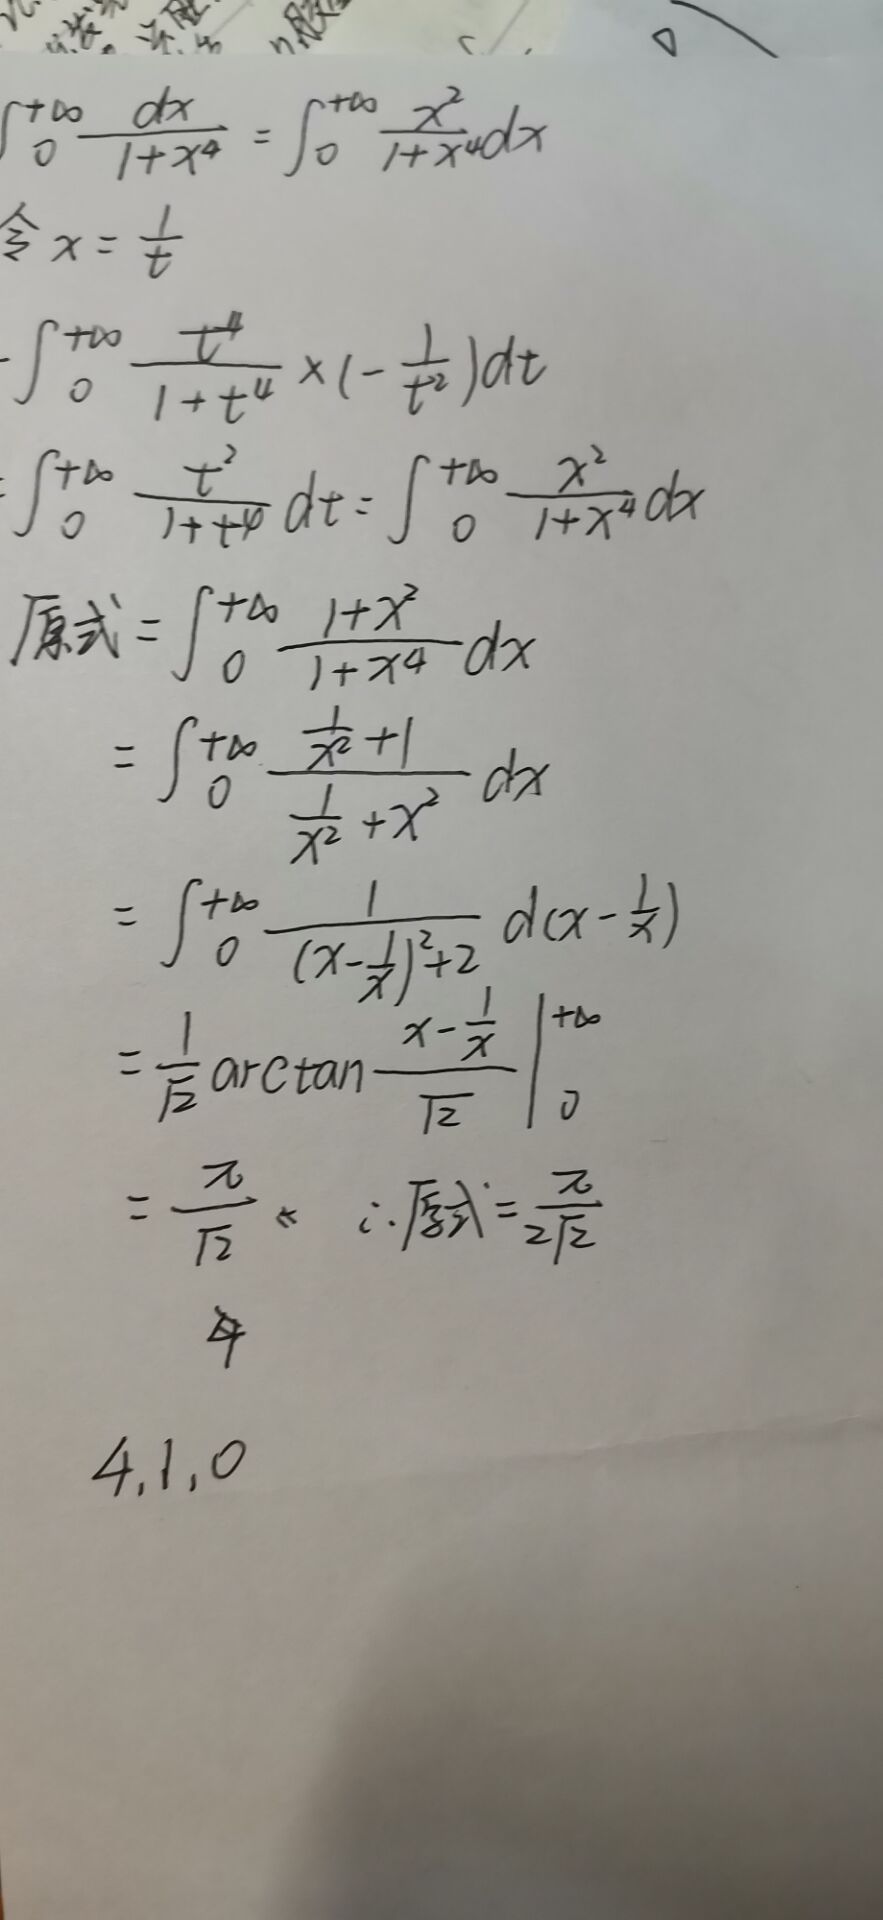 ∫₀^{+∞} dx/(1+x⁴) = ∫₀^{+∞} x²/(1+x⁴) dx
令 x = 1/t
-∫₀^{+∞} t⁴/(1+t⁴) × (-1/t²) dt
= ∫₀^{+∞} t²/(1+t⁴) dt = ∫₀^{+∞} x²/(1+x⁴) dx
原式 = ∫₀^{+∞} (1+x²)/(1+x⁴) dx
= ∫₀^{+∞} (1/x²+1)/(1/x²+x²) dx
= ∫₀^{+∞} 1/((x-1/x)²+2) d(x-1/x)
= 1/√2 arctan (x-1/x)/√2 |₀^{+∞}
= π/√2 ∴原式 = π/(2√2)
4
4,1,0